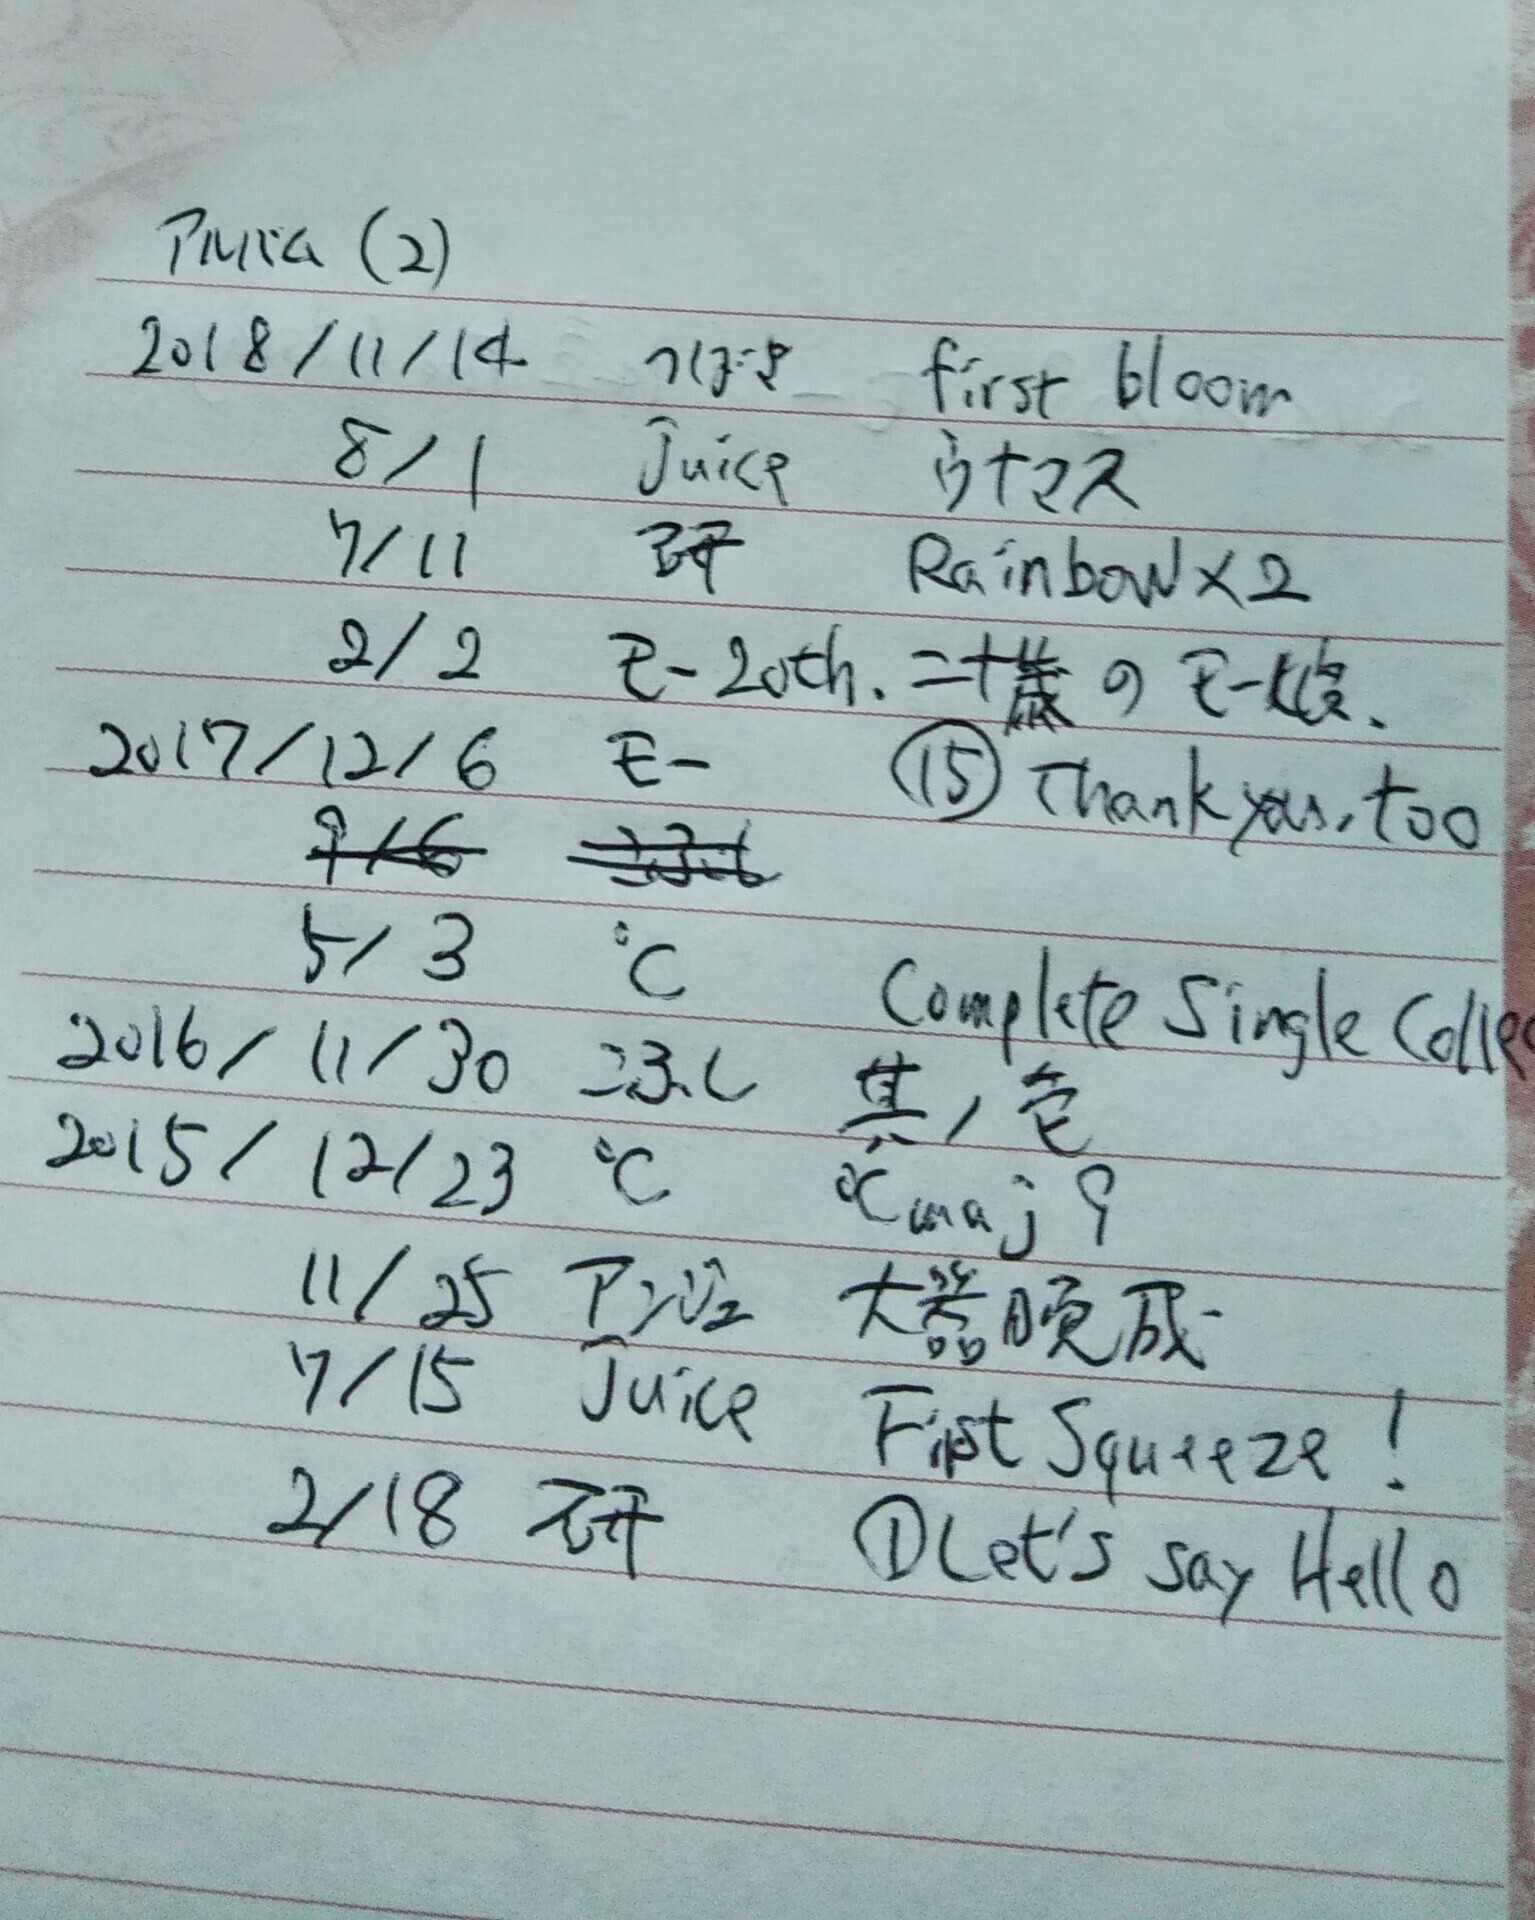 アルバム (2)
2018/11/14 つばき first bloom
8/1 Juice ウナマス
7/11 研 Rainbow×2
2/2 モー20th. 二十歳のモー娘.
2017/12/6 モー ⑮ Thank you, too
9/6 こぶし
5/3 ℃ Complete Single Colle
2016/11/30 こぶし 其ノ壱
2015/12/23 ℃ ℃maj9
11/25 アンジュ 大器晩成
7/15 Juice First Squeeze!
2/18 研 ① Let's say Hello